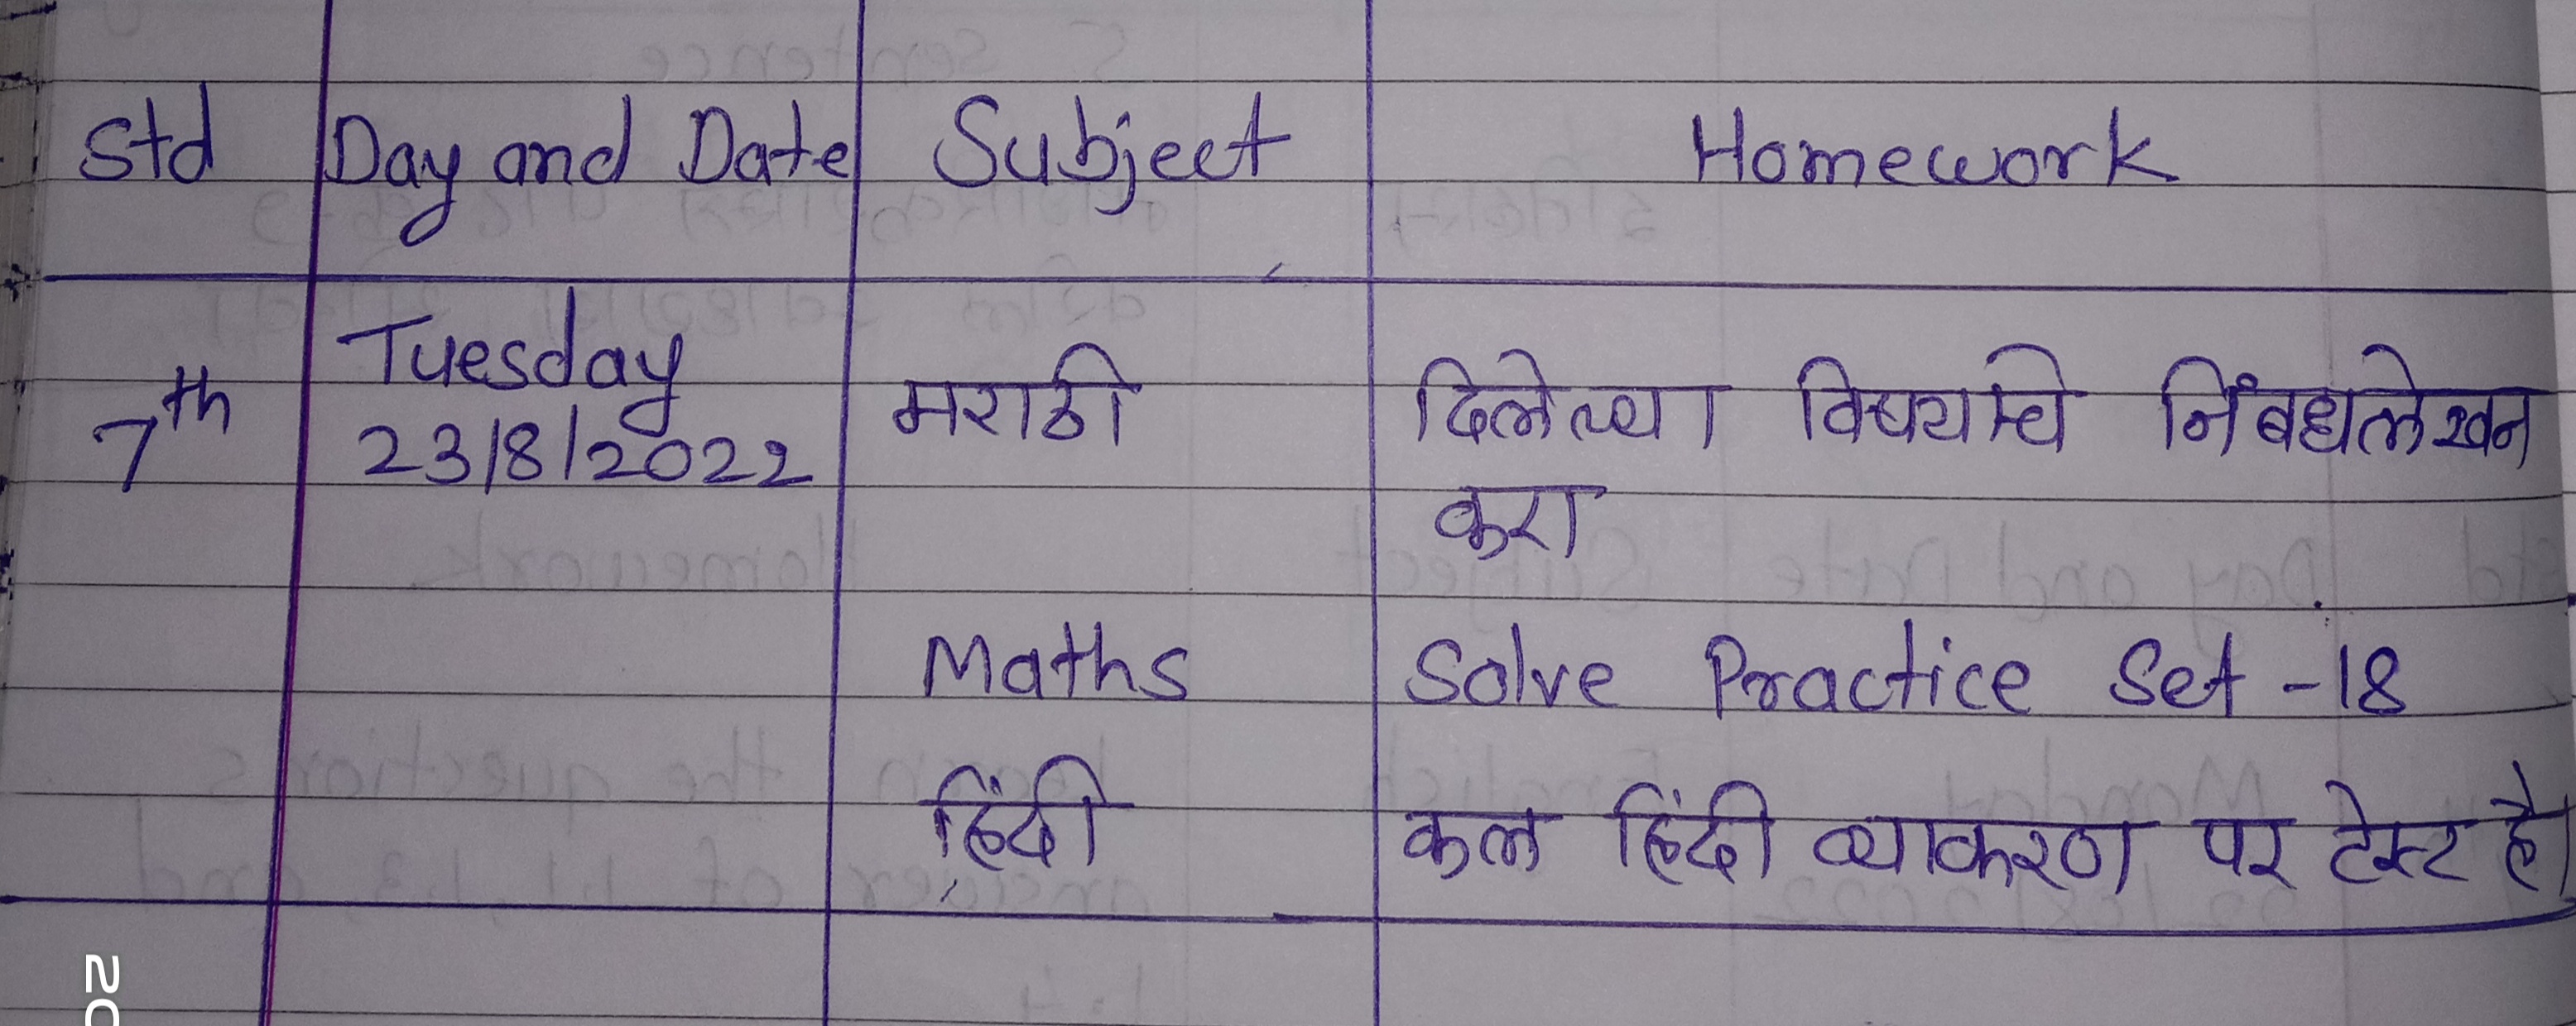 Std Day and Date Subject Homework
Tuesday
7th 23/8/2022 मराठी दिलेल्या विषयाचे निंबधलेखन
करा
Maths Solve Practice Set -18
हिंदी कल हिंदी व्याकरण पर टेस्ट है।
20